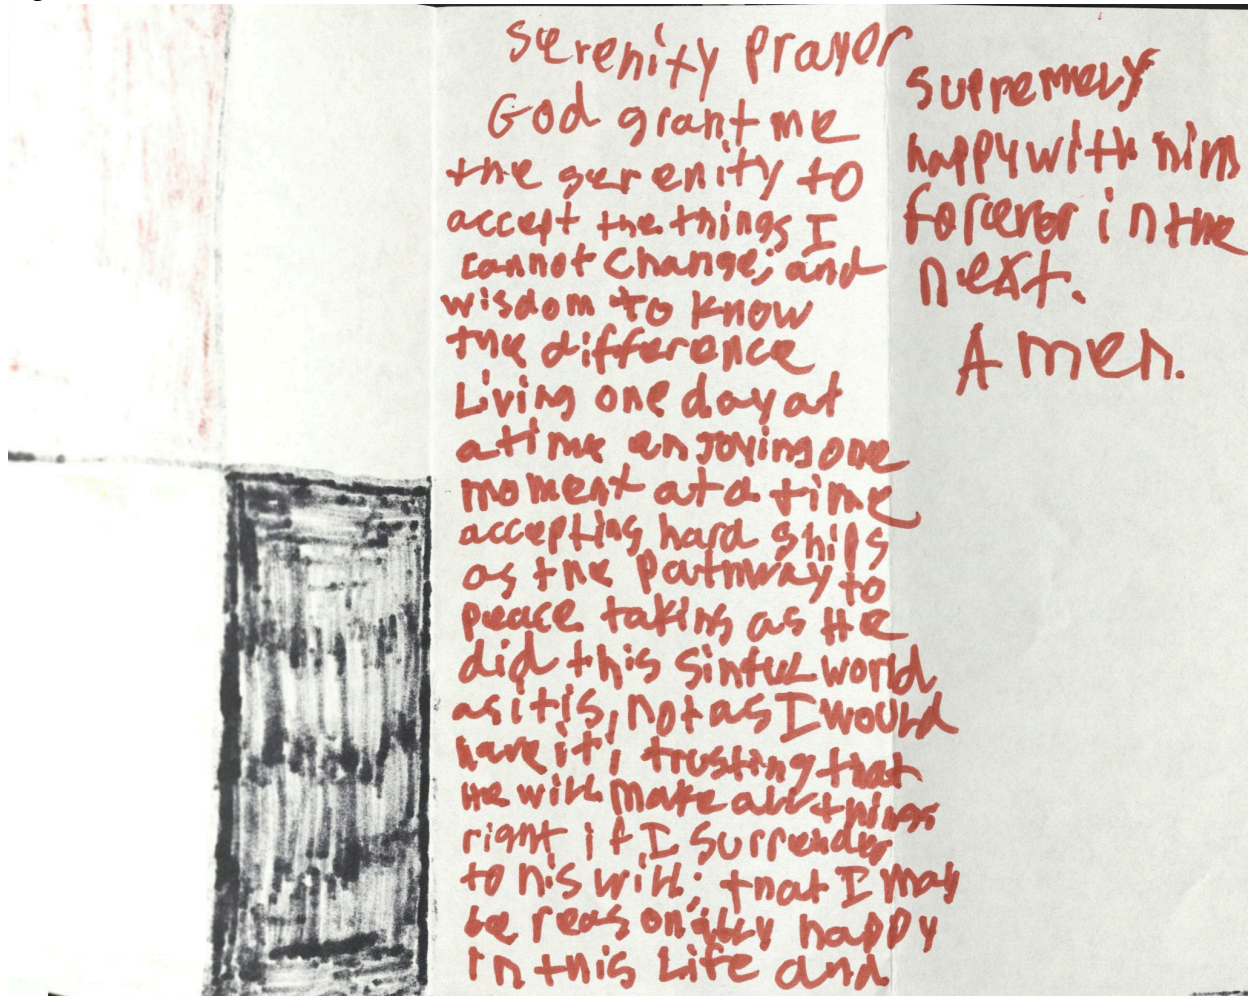 Serenity prayer
God grant me
the serenity to
accept the things I
cannot change; and
wisdom to know
the difference
Living one day at
a time enjoying one
moment at a time
accepting hard ships
as the pathway to
peace taking as He
did this sinful world
as it is, not as I would
have it; trusting that
He will make all things
right if I surrender
to his will; that I may
be reasonably happy
in this Life and
suppremely
happy with him
forever in the
next.
Amen.